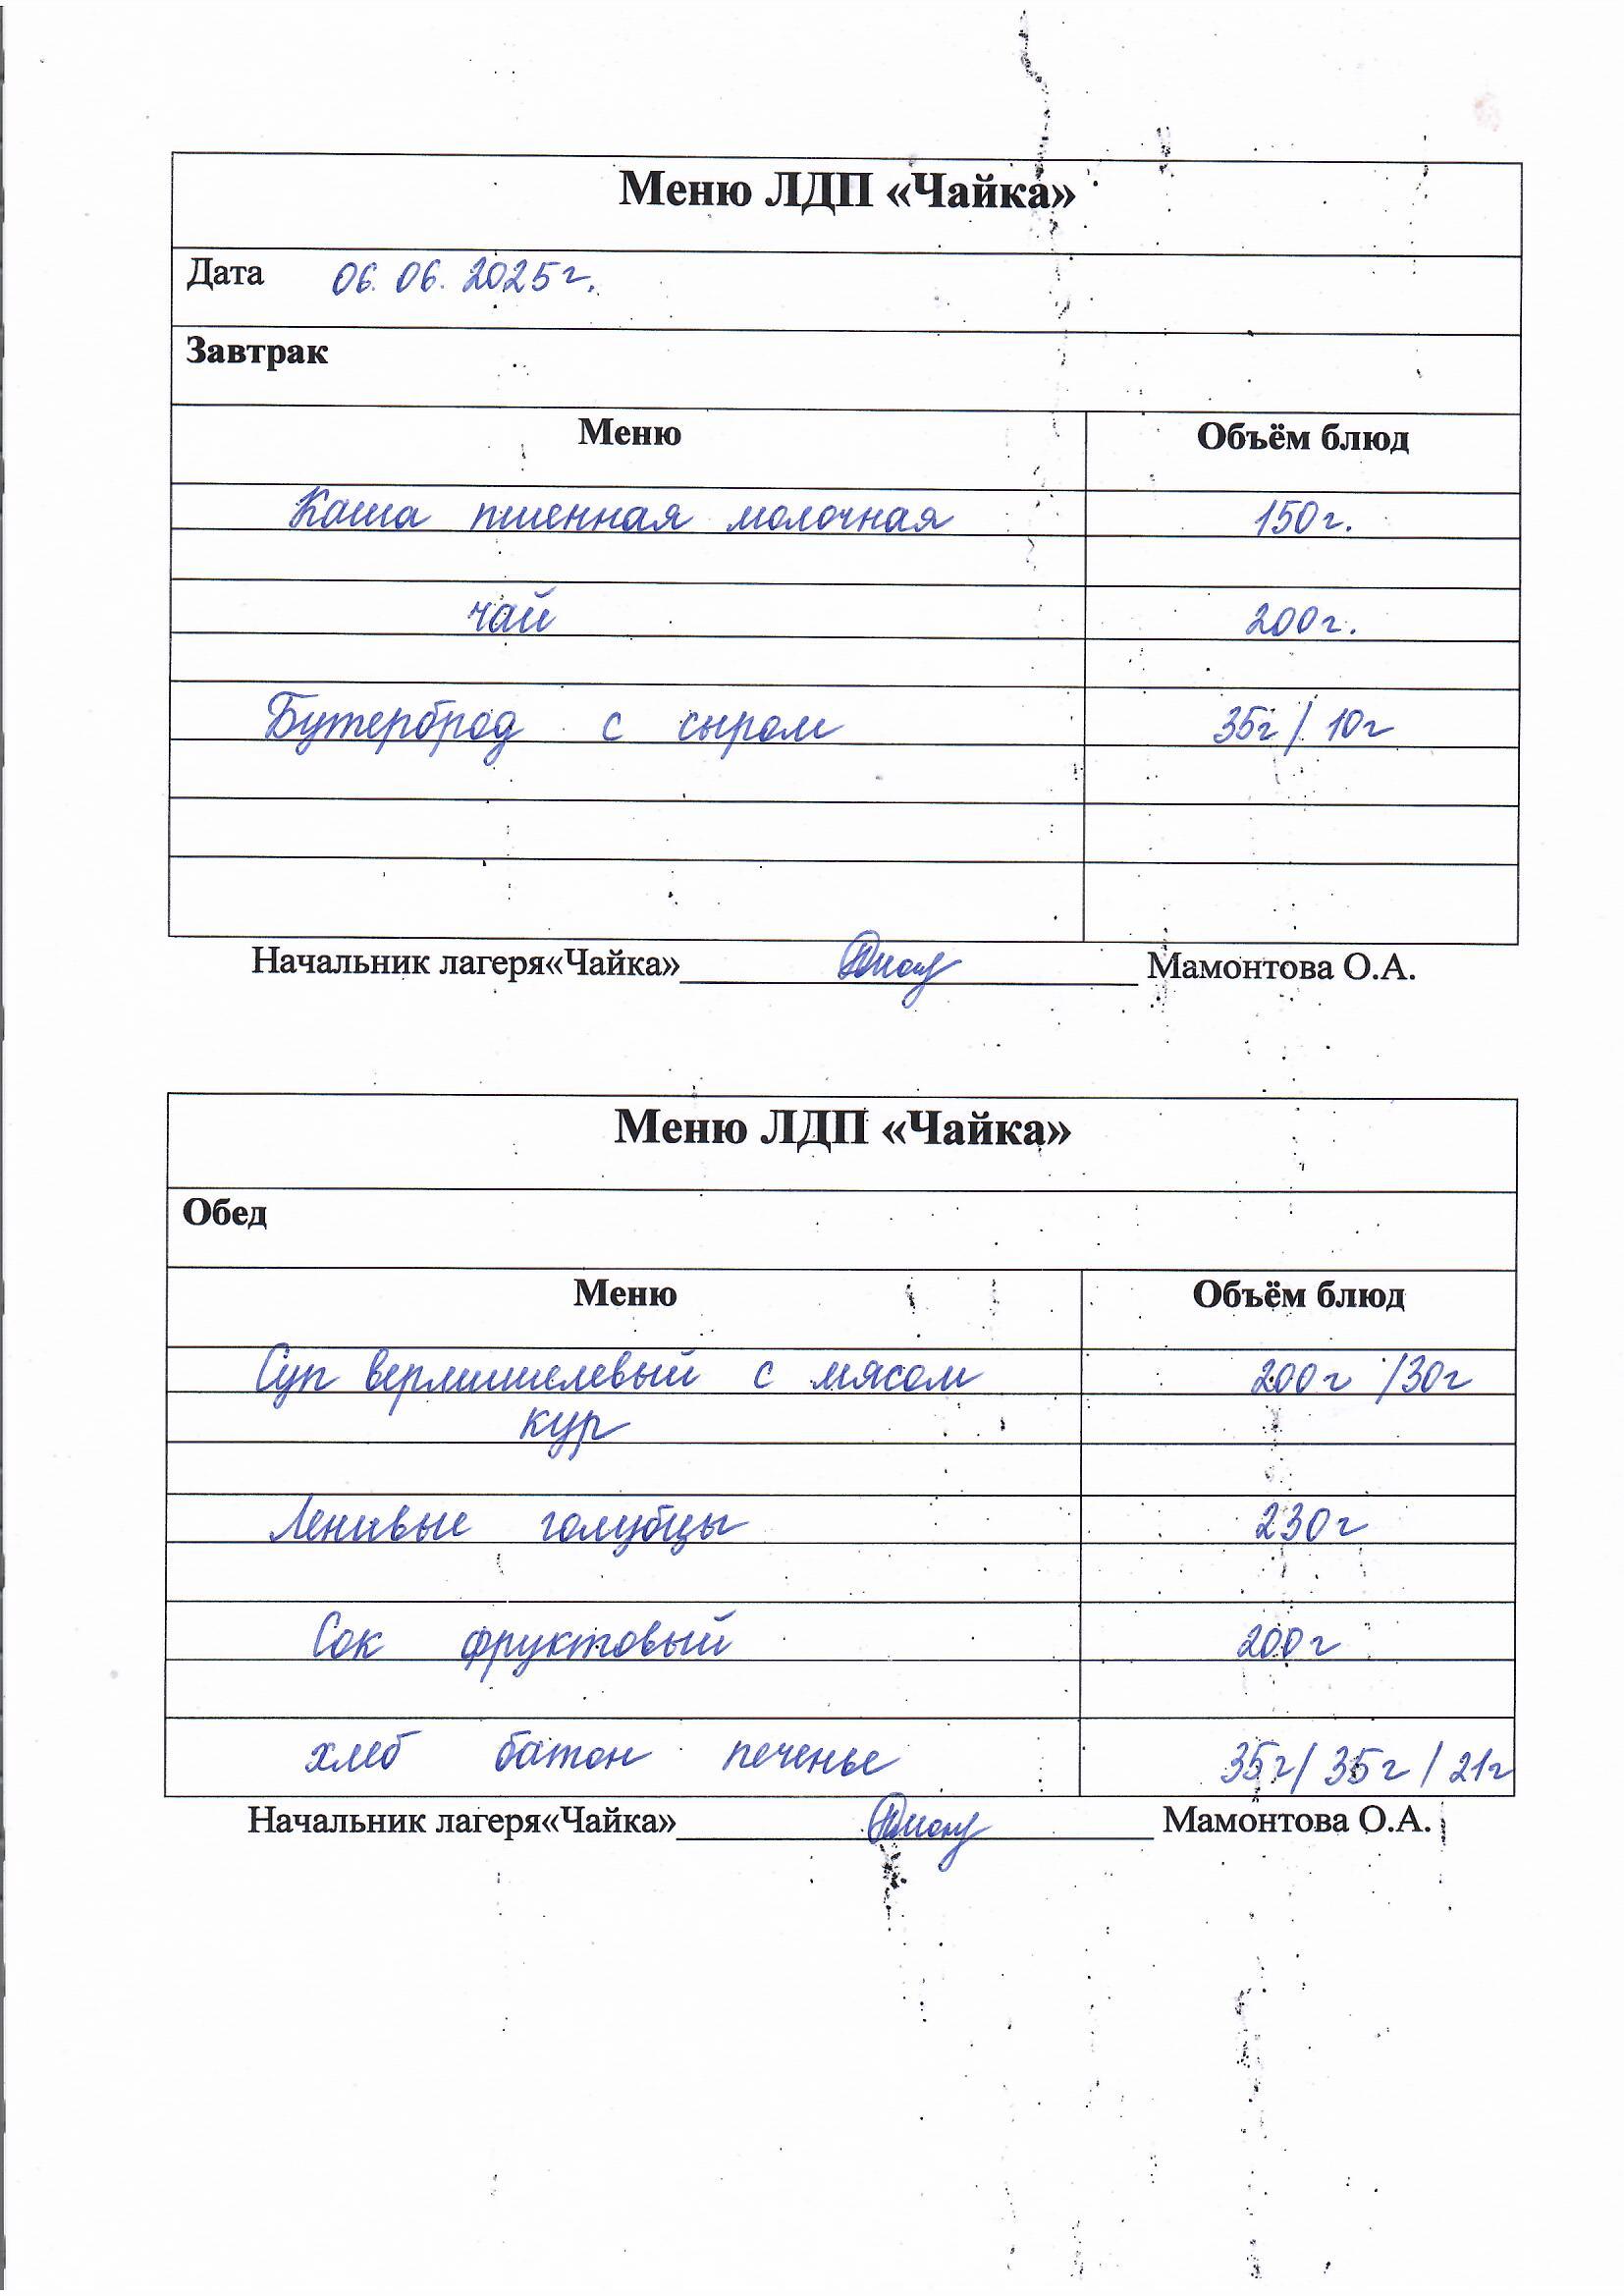 Меню ЛДП «Чайка»
Дата 06.06.2025г.
Завтрак
Меню Объём блюд
Каша пшенная молочная 150г.
чай 200г.
Бутерброд с сыром 35г/ 10г
Начальник лагеря«Чайка» Мамонтова О.А.
Меню ЛДП «Чайка»
Обед
Меню Объём блюд
Суп вермишелевый с мясом 200г /30г
кур
Ленивые голубцы 230г
Сок фруктовый 200г
хлеб батон печенье 35г/ 35г / 21г
Начальник лагеря«Чайка» Мамонтова О.А.